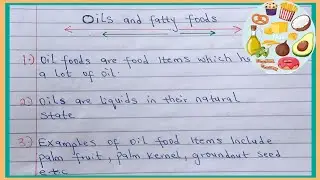 Oils and fatty foods
1.) Oil foods are food Items which hs
a lot of oil.
2.) Oils are liquids in their natural
state
3.) Examples of oil food Items Include
palm fruit, palm kernel, groundnut seed
e.t.c